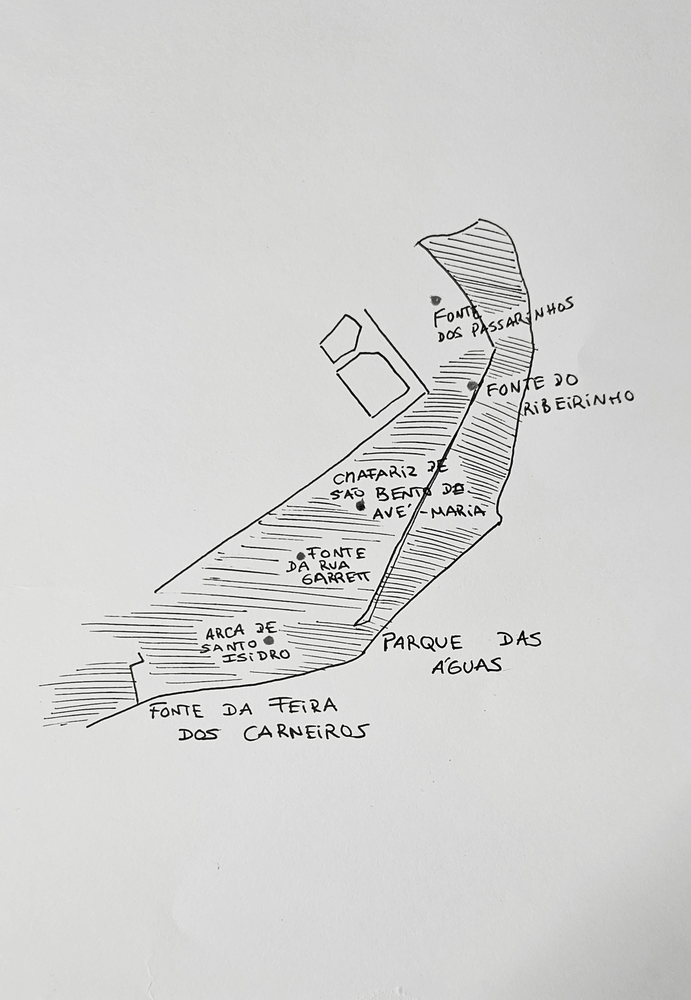 FONTE
DOS PASSARINHOS
FONTE DO
RIBEIRINHO
CHAFARIZ DE
SÃO BENTO DE
AVÉ-MARIA
FONTE
DA RUA
GARRETT
ARCA DE
SANTO
ISIDRO
PARQUE DAS
ÁGUAS
FONTE DA FEIRA
DOS CARNEIROS